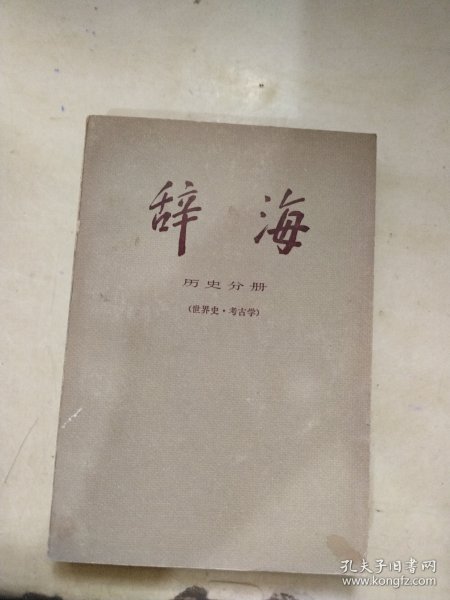 辞海
历史分册
(世界史·考古学)
孔夫子旧书网
www.kongfz.com